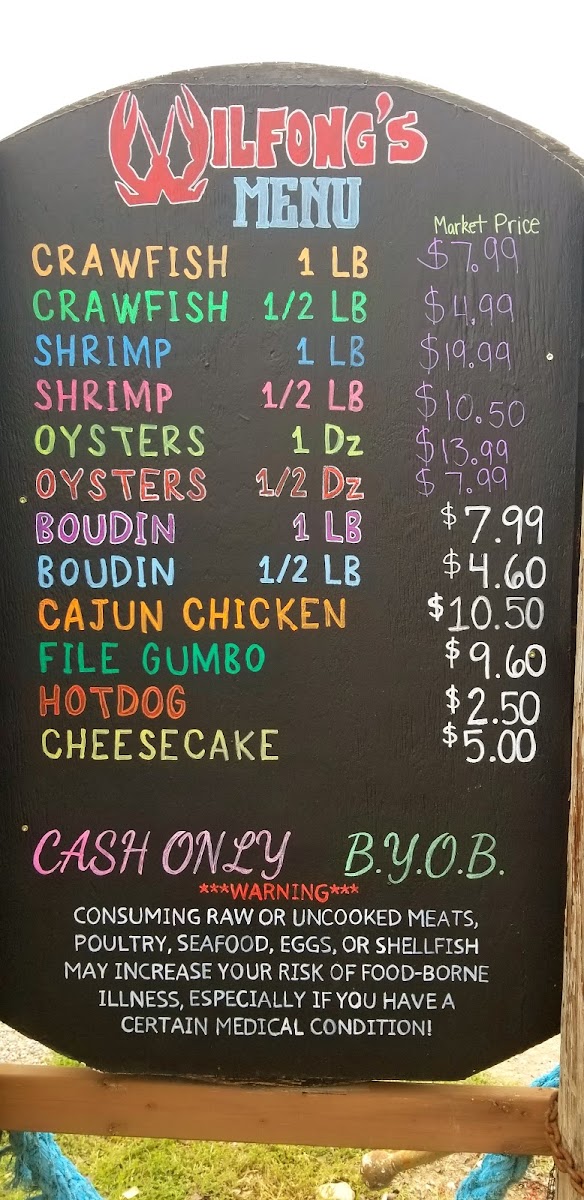 WILFONG'S
MENU
Market Price
CRAWFISH 1 LB $7.99
CRAWFISH 1/2 LB $4.99
SHRIMP 1 LB $19.99
SHRIMP 1/2 LB $10.50
OYSTERS 1 Dz $13.99
OYSTERS 1/2 Dz $7.99
BOUDIN 1 LB $7.99
BOUDIN 1/2 LB $4.60
CAJUN CHICKEN $10.50
FILE GUMBO $9.60
HOTDOG $2.50
CHEESECAKE $5.00
CASH ONLY B.Y.O.B.
***WARNING***
CONSUMING RAW OR UNCOOKED MEATS,
POULTRY, SEAFOOD, EGGS, OR SHELLFISH
MAY INCREASE YOUR RISK OF FOOD-BORNE
ILLNESS, ESPECIALLY IF YOU HAVE A
CERTAIN MEDICAL CONDITION!